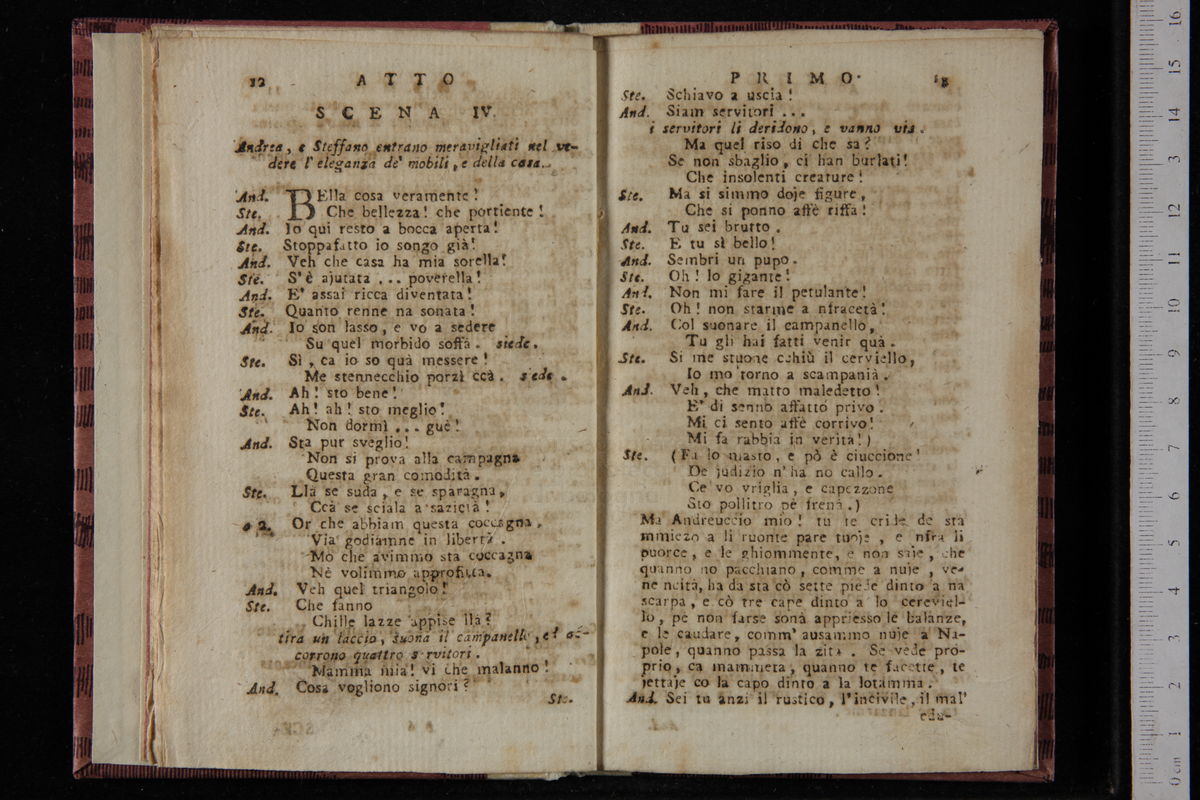 12 ATTO
SCENA IV.
Andrea, e Steffano entrano meravigliati nel ve-
dere l' eleganza de' mobili, e della casa.
And. BElla cosa veramente!
Ste. Che bellezza! che portiente!
And. Io qui resto a bocca aperta!
Ste. Stoppafatto io songo già!
And. Veh che casa ha mia sorella!
Ste. S' è ajutata ... poverella!
And. E' assai ricca diventata!
Ste. Quanto renne na sonata!
And. Io son lasso, e vo a sedere
Su quel morbido soffà. siede.
Ste. Sì, ca io so quà messere!
Me stennecchio porzì ccà. siede.
And. Ah! sto bene!
Ste. Ah! ah! sto meglio!
Non dormì ... guè!
And. Sta pur sveglio!
Non si prova alla campagna
Questa gran comodità.
Ste. Llà se suda, e se sparagna,
Ccà se sciala a sazietà!
a 2. Or che abbiam questa coccagna,
Via godiamne in libertà.
Mo che avimmo sta coccagna
Nè volimmo approfittà.
And. Veh quel triangolo!
Ste. Che fanno
Chille lazze appise llà?
tira un laccio, suona il campanello, ed ac-
corrono quattro servitori.
Mamma mia! vi che malanno!
And. Cosa vogliono signori?
Ste.
PRIMO. 13
Ste. Schiavo a uscia!
And. Siam servitori ...
i servitori li deridono, e vanno via.
Ma quel riso di che sa?
Se non sbaglio, ci han burlati!
Che insolenti creature!
Ste. Ma si simmo doje figure,
Che si ponno affè riffa!
And. Tu sei brutto.
Ste. E tu sì bello!
And. Sembri un pupo.
Ste. Oh! lo gigante!
And. Non mi fare il petulante!
Ste. Oh! non starme a nfracetà!
And. Col suonare il campanello,
Tu gli hai fatti venir quà.
Ste. Si me stuone cchiù il cerviello,
Io mo torno a scampanià.
And. Veh, che matto maledetto!
E' di senno affatto privo.
Mi ci sento affè corrivo!
Mi fa rabbia in verità!)
Ste. (Fa lo masto, e pò è ciuccione!
De judizio n' ha no callo.
Ce vo vriglia, e capezzone
Sto pollitro pè frenà.)
Ma Andreuccio mio! tu te cride de sta
mmiezo a li ruonte pare tuoje, e nfra li
puorce, e le ghiommente, e non saje, che
quanno no pacchiano, comme a nuje, ve-
ne ncità, ha da sta cò sette piede dinto a na
scarpa, e cò tre cape dinto a lo cereviel-
lo, pe non farse sonà appriesso le balanze,
e le caudare, comm' ausammo nuje a Na-
pole, quanno passa la zita. Se vede pro-
prio, ca mammeta, quanno te facette, te
jettaje co la capo dinto a la lotamma.
And. Sei tu anzi il rustico, l'incivile, il mal'
edu-